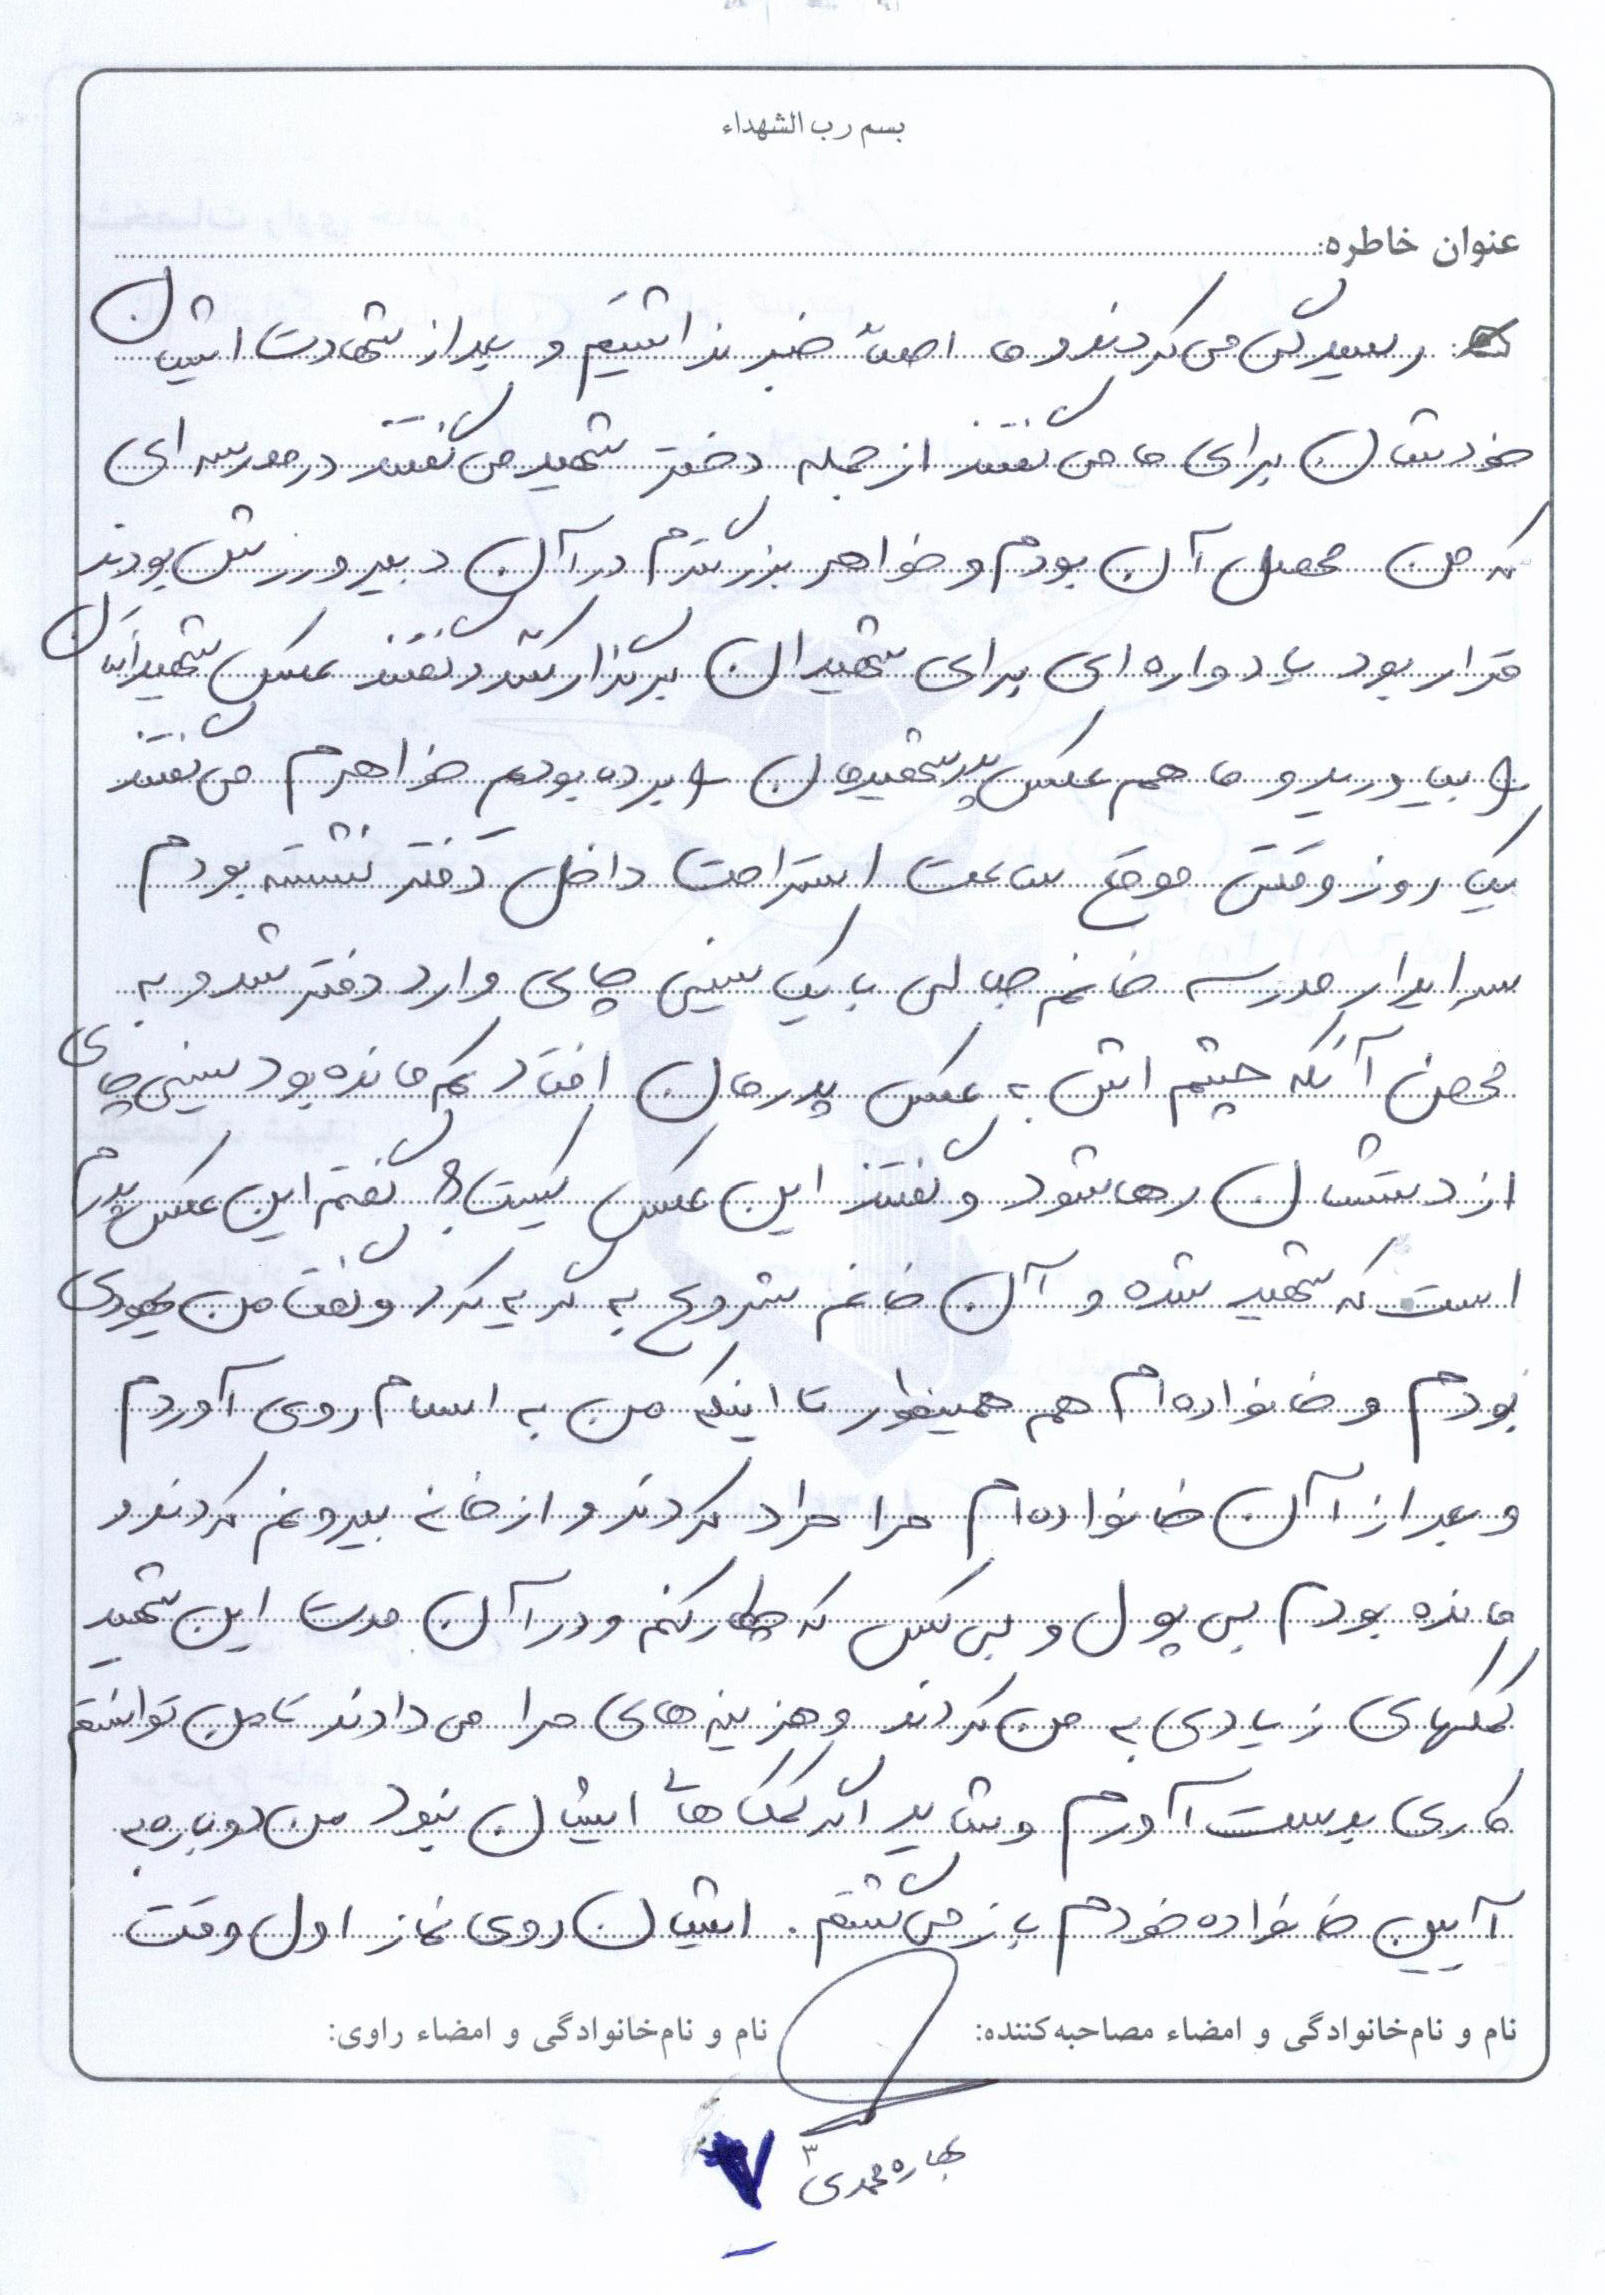 بسم رب الشهداء
عنوان خاطره:
رسیدگی می کردند و ما اصلاً خبر نداشتیم و بعد از شهادت ایشان
خودشان برای ما می گفتند از جمله دختر شهید می گفتند در مدرسه ای
که من محصل آن بودم و خواهر بزرگترم در آن دبیر ورزش بودند
قرار بود یادواره ای برای شهیدان برگذار شد و گفتند عکس شهیدتان
را بیاورید و ما هم عکس پدر شهیدمان را برده بودیم خواهرم می گفتند
یک روز وقتی موقع ساعت استراحت داخل دفتر نشسته بودم
سرایدار مدرسه خانم جبالی با یک سینی چای وارد دفتر شد و به
محض آنکه چشم اش به عکس پدرمان افتاد کم مانده بود سینی چای
از دستشان رها شود و گفتند این عکس کیست؟ گفتم این عکس پدرم
است که شهید شده و آن خانم شروع به گریه کرد و گفت من یهودی
بودم و خانواده ام هم همینطور تا اینکه من به اسلام روی آوردم
و بعد از آن خانواده ام مرا طرد کردند و از خانه بیرونم کردند و
مانده بودم بی پول و بی کس که چکار کنم و در آن مدت این شهید
کمکهای زیادی به من کردند و هزینه های مرا می دادند تا من توانستم
کاری بدست آورم و شاید اگر کمک هاۓ ایشان نبود من دوباره به
آیین خانواده خودم باز می گشتم. ایشان روی نماز اول وقت
نام و نام‌خانوادگی و امضاء مصاحبه‌کننده:
نام و نام‌خانوادگی و امضاء راوی:
بهاره محمدی
۳
۷